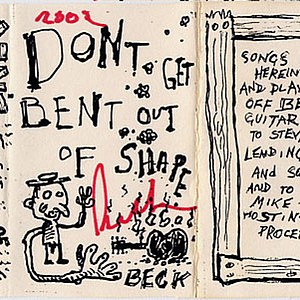 2002
DON'T GET
BENT OUT
OF SHAPE
BECK
SONGS
HEREIN
AND PLAY
OFF
GUITAR
TO STE
LENDING
AND SO
AND TO
MIKE
HOSTING
PROCE